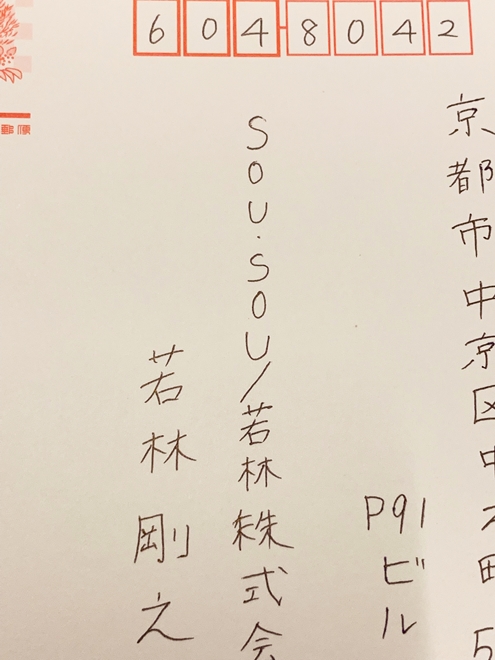 6048042
京都市中京区中
P91ビル
SOU・SOU/若林株式会
若林剛之
郵便